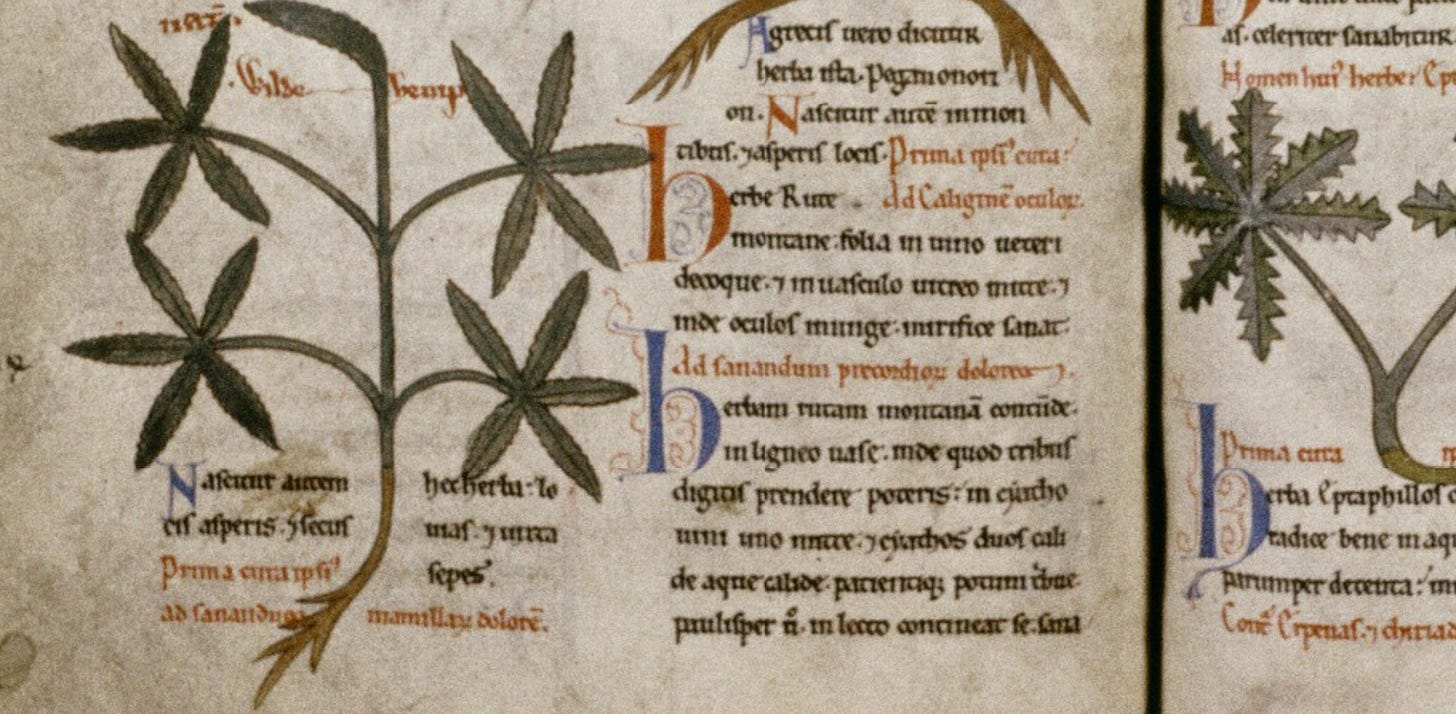 Wilde hemp
Nascitur autem hec herba: lo
cis asperis. ⁊ secus uias. ⁊ iuxta
sepes.
Prima cura ipsiꝰ
ad sanandum mamillaꝝ dolorē.
A grecis uero dicitur
herba ista. Pegmonon
on. Nascitur autē in mon
tibus. ⁊ asperis locis. Prima ipsiꝰ cura:
herbe Rute Ad Caliginē oculoꝝ.
montane: folia in uino ueteri
decoque: ⁊ in uasculo uitreo mitte: ⁊
inde oculos inunge: mirifice sanat.
Ad sanandum precordioꝝ dolores
herbam rutam montanā contūde.
in ligneo uase. inde quod tribus
digitis prendere poteris: in cyatho
uini uno mitte. ⁊ cyathos duos cali
de aque calide. patientiqꝫ potum tbue
paulisper ū. in lecto contineat se. sana
as. celeriter sanabitur
Nomen huiꝰ herbe:
Prima cura
herba Eptaphillos
radice bene in aqu
parumper decocta: